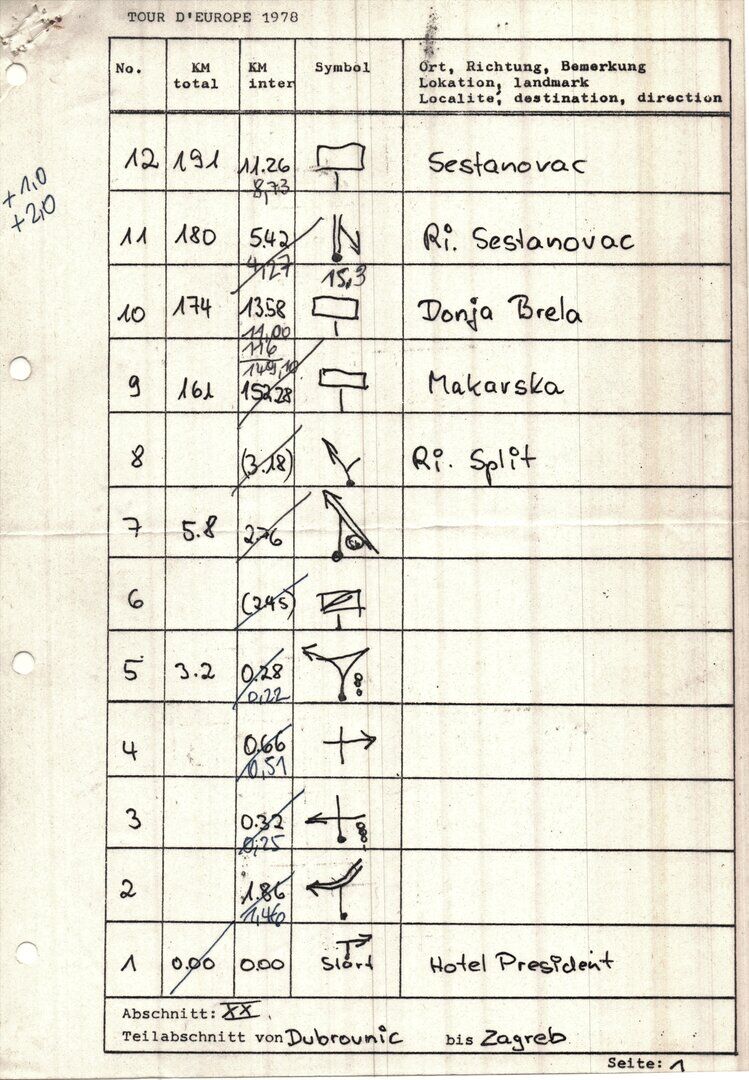 TOUR D'EUROPE 1978
No. KM total KM inter Symbol Ort, Richtung, Bemerkung
Lokation, landmark
Localite, destination, direction
+1,0
+2,0
12 191 11.26 Sestanovac
8,73
11 180 5.42 Ri. Sestanovac
4,27 15,3
10 174 13.58 Donja Brela
11,00
116
149,10
9 161 152.28 Makarska
8 (3.18) Ri. Split
7 5.8 2.76
6 (2.45)
5 3.2 0.28
0,22
4 0.66
0,51
3 0.32
0,25
2 1.86
1,46
1 0.00 0.00 Start Hotel President
Abschnitt: XX.
Teilabschnitt von Dubrovnic bis Zagreb
Seite: 1